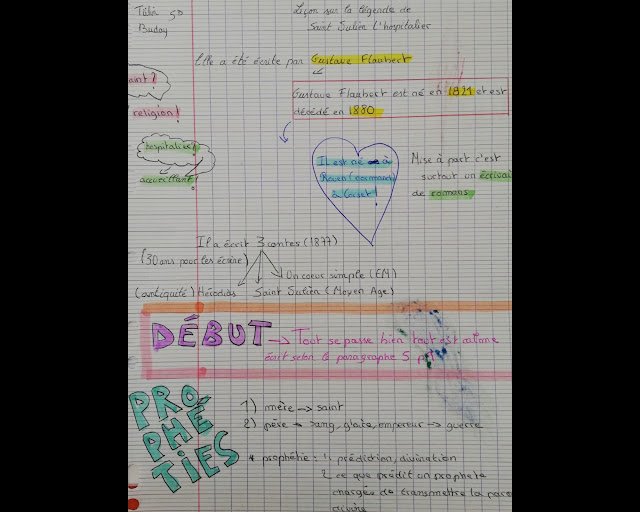 Julia 5D
Leçon sur la légende de
Buday
Saint Julien L'hospitalier
Elle a été écrite par Gustave Flaubert
aint ?
Gustave Flaubert est né en 1821 et est
décédé en 1880
religion !
hospitalier !
accueillant !
Il est né à
Rouen
Mise à part c'est
surtout un écrivai
de romans
Il a écrit 3 contes (1877)
(30 ans pour les écrire)
Un coeur simple (EM)
(antiquité) Hérodias
Saint Julien (Moyen Age)
DÉBUT → Tout se passe bien tout est calme
écrit selon le paragraphe 5
PROPHÉTIES
1) mère → saint
2) père → sang, gloire, empereur → guerre
* prophétie : 1. prédiction, divination
2 ce que prédit un prophète
chargée de transmettre la paro
divine